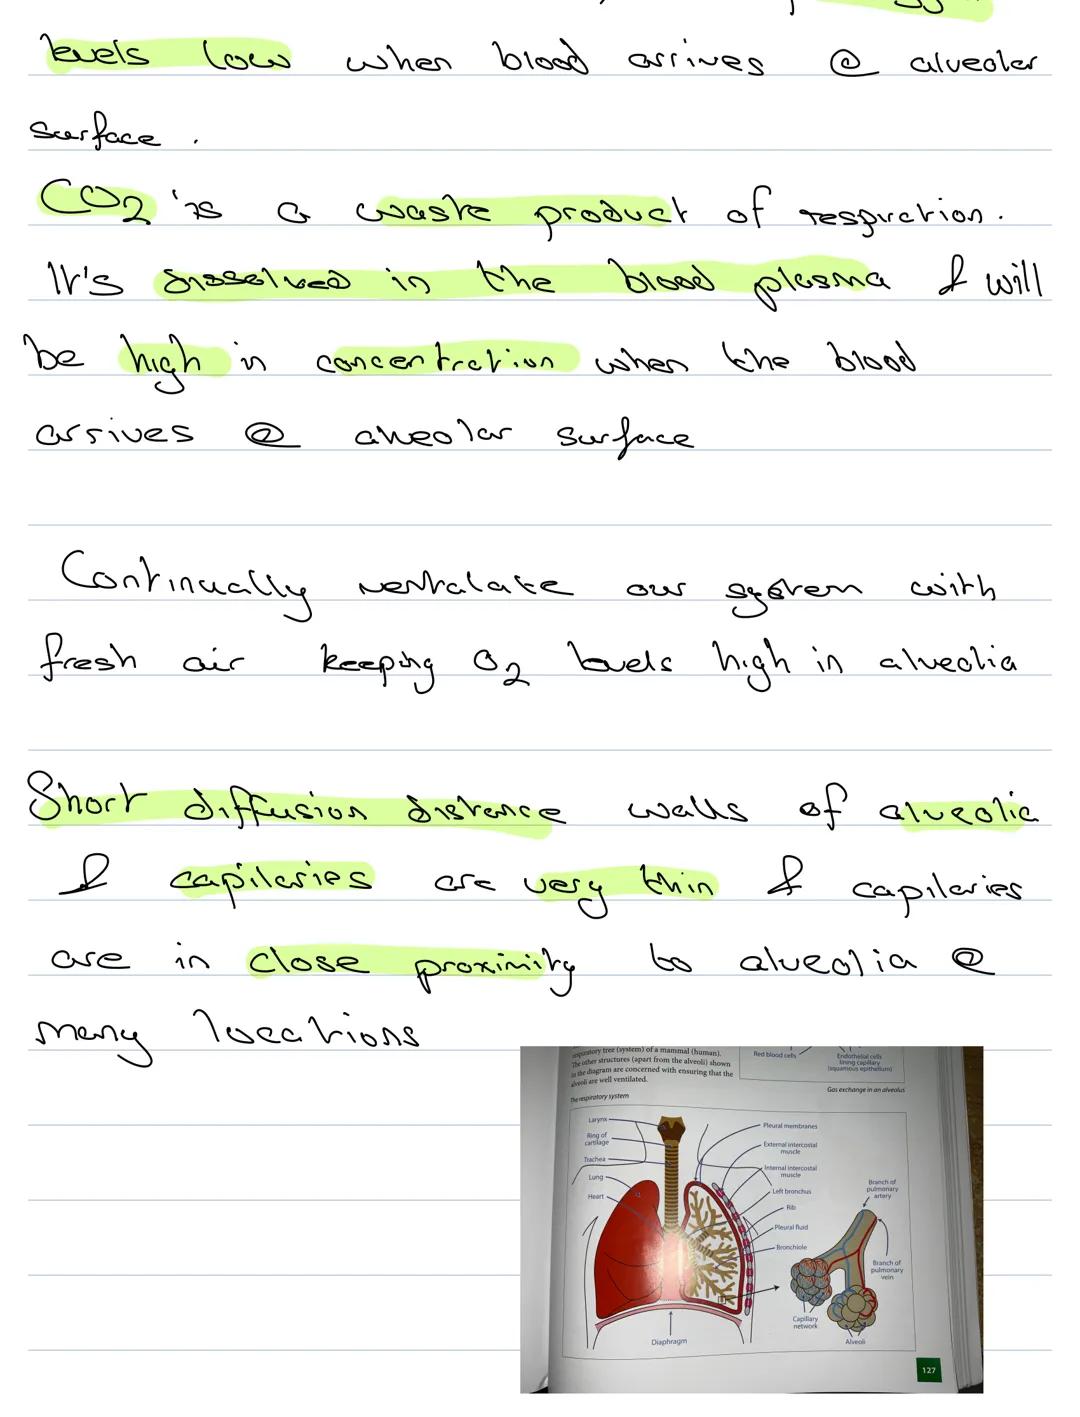 levels low when blood arrives @ alveolar
surface.
CO2 is a waste product of respiration.
It's dissolved in the blood plasma & will
be high in concentration when the blood
arrives @ alveolar surface
Continually ventalate our system with
fresh air keeping O2 levels high in alveolia
Short diffusion distance walls of alveolia
& capilaries are very thin & capilaries
are in close proximity to alveolia @
many locations
respiratory tree (system) of a mammal (human).
The other structures (apart from the alveoli) shown
in the diagram are concerned with ensuring that the
alveoli are well ventilated.
Red blood cells
Endothelial cells
lining capillary
(squamous epithelium)
Gas exchange in an alveolus
The respiratory system
Larynx
Ring of
cartilage
Trachea
Lung
Heart
Pleural membranes
External intercostal
muscle
Internal intercostal
muscle
Left bronchus
Rib
Pleural fluid
Bronchiole
Branch of
pulmonary
artery
Branch of
pulmonary
vein
Capillary
network
Alveoli
Diaphragm
127